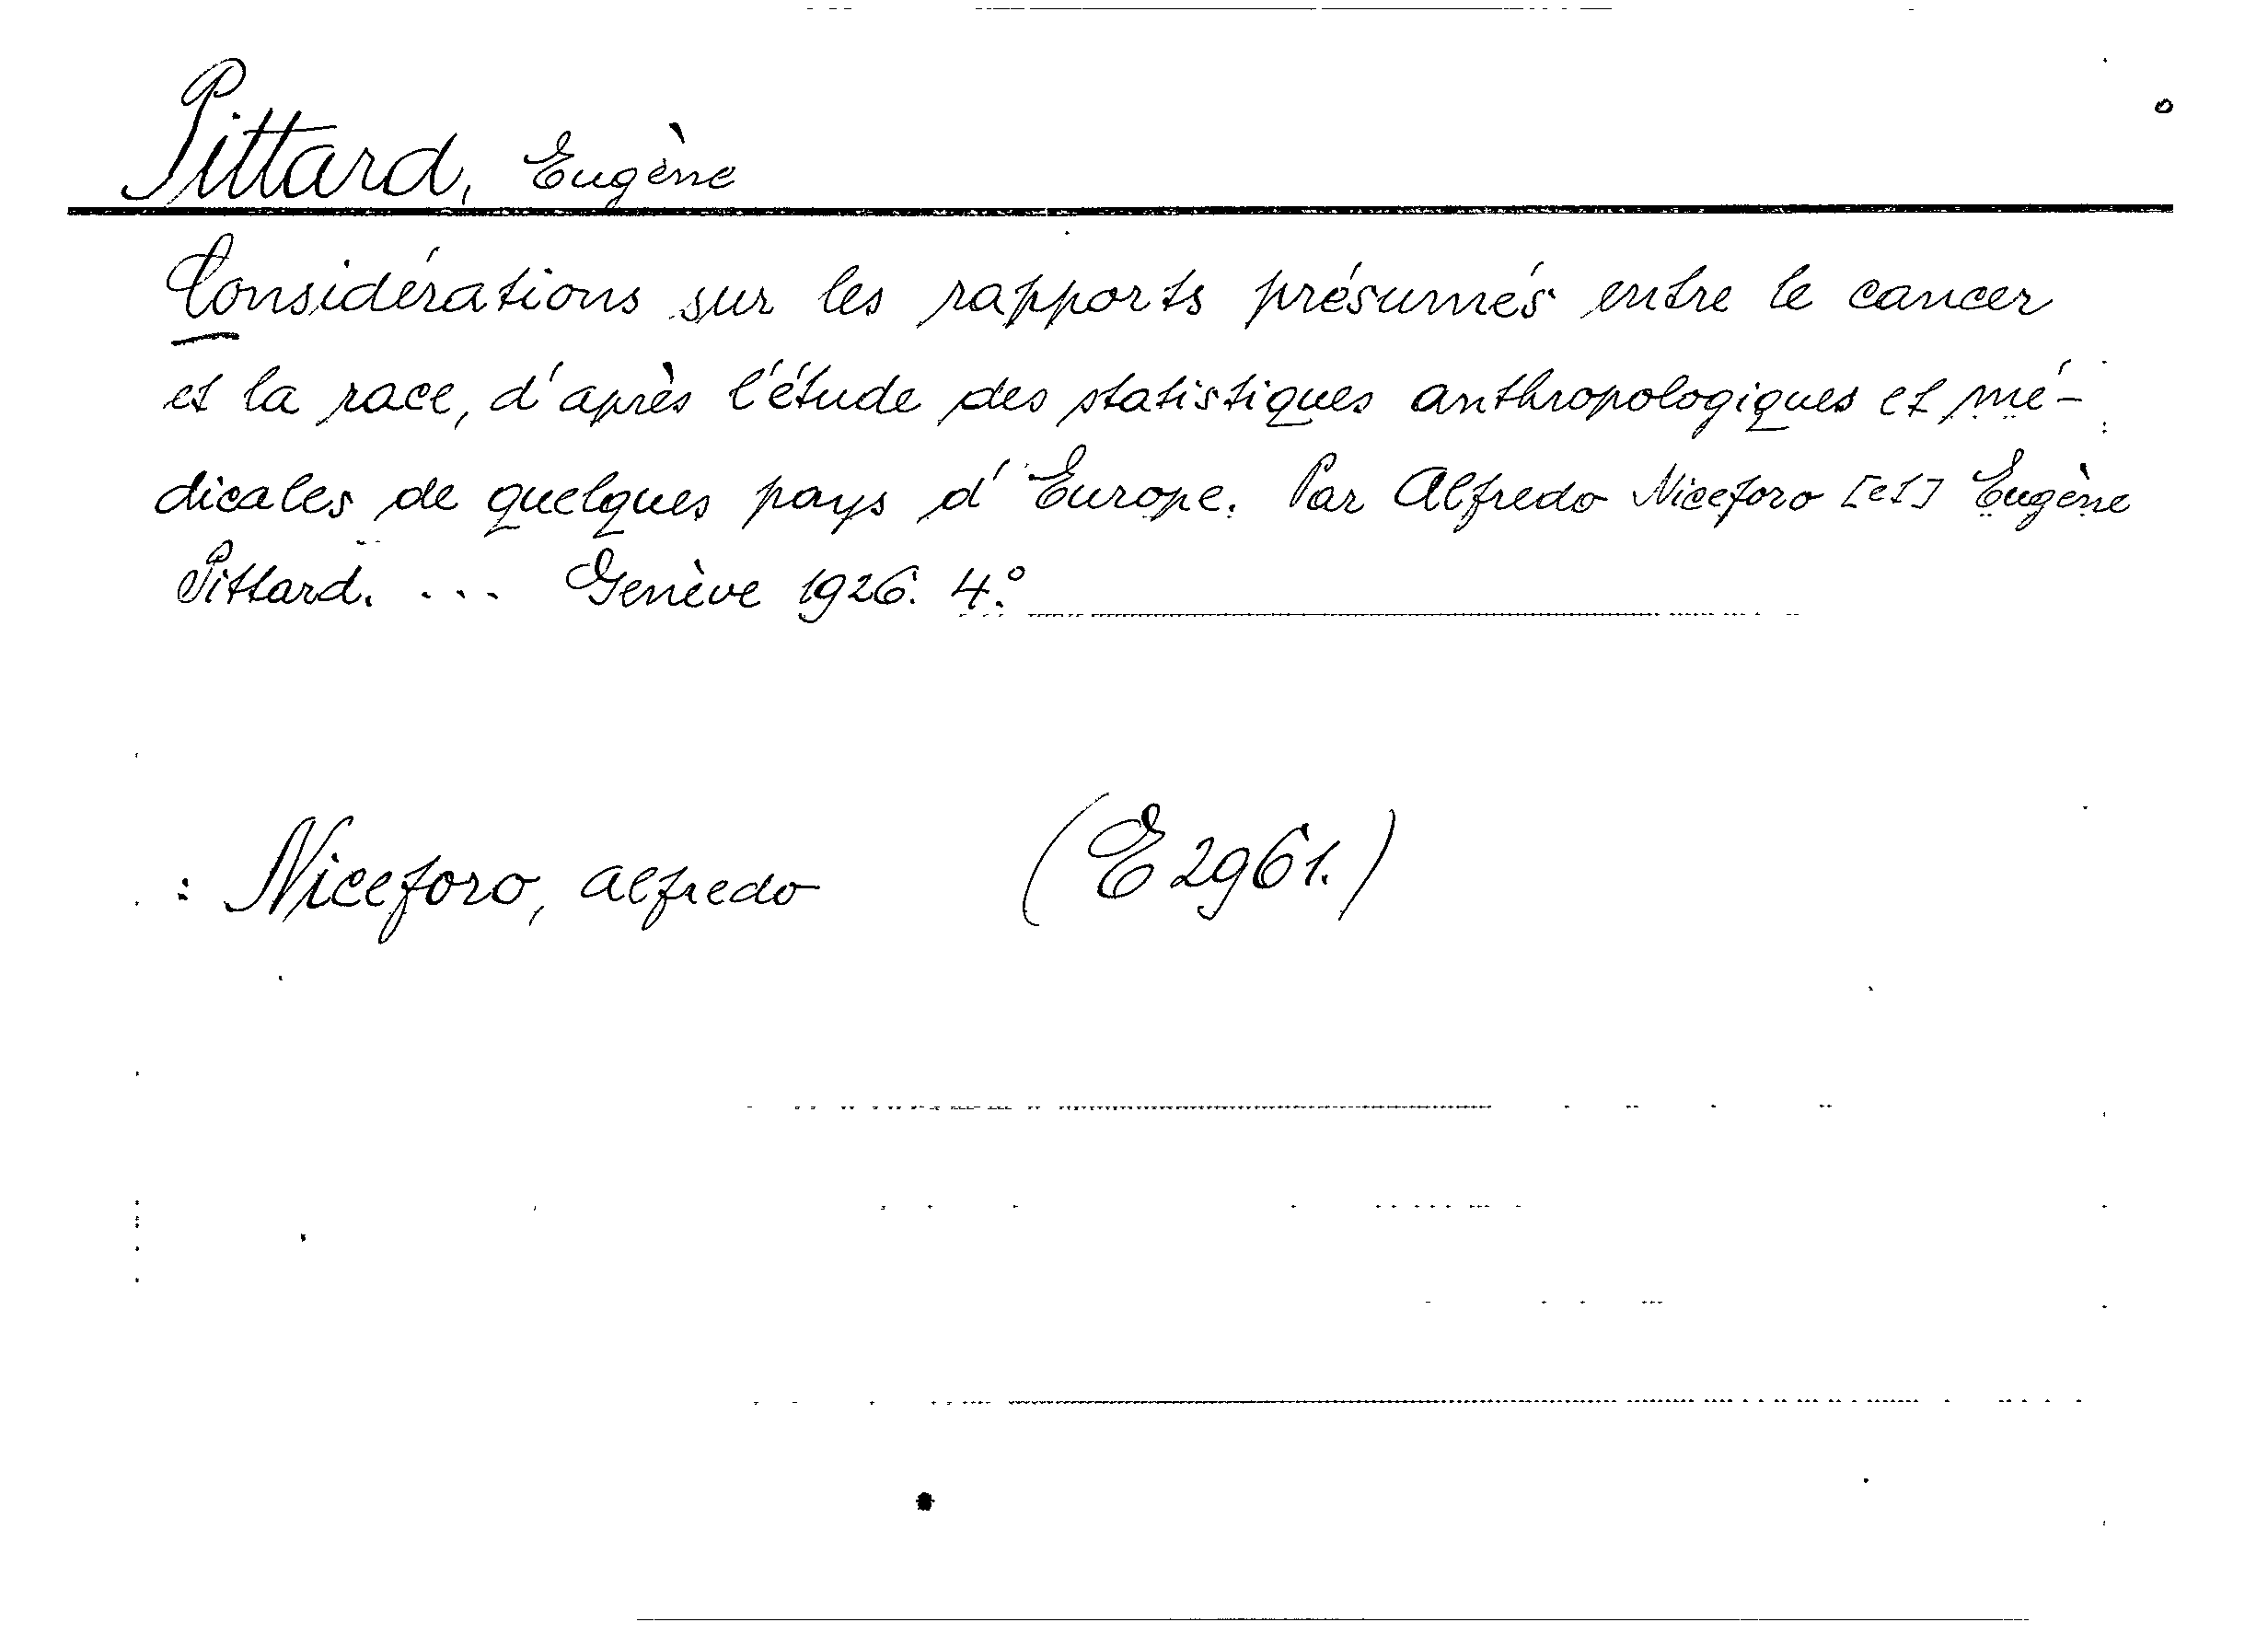 Pittard, Eugène
Considérations sur les rapports présumés entre le cancer
et la race, d'après l'étude des statistiques anthropologiques et mé-
dicales de quelques pays d'Europe. Par Alfredo Niceforo [et] Eugène
Pittard. ... Genève 1926. 4:o
: Niceforo, Alfredo (E 2961.)